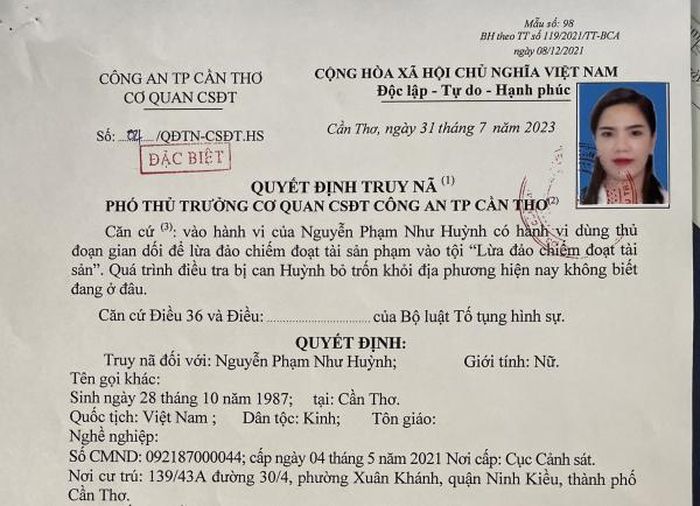 Mẫu số: 98
BH theo TT số 119/2021/TT-BCA
ngày 08/12/2021
CÔNG AN TP CẦN THƠ
CƠ QUAN CSĐT
CỘNG HÒA XÃ HỘI CHỦ NGHĨA VIỆT NAM
Độc lập - Tự do - Hạnh phúc
Số: /QĐTN-CSĐT.HS
Cần Thơ, ngày 31 tháng 7 năm 2023
ĐẶC BIỆT
QUYẾT ĐỊNH TRUY NÃ (1)
PHÓ THỦ TRƯỞNG CƠ QUAN CSĐT CÔNG AN TP CẦN THƠ(2)
Căn cứ (3): vào hành vi của Nguyễn Phạm Như Huỳnh có hành vi dùng thủ
đoạn gian dối để lừa đảo chiếm đoạt tài sản phạm vào tội “Lừa đảo chiếm đoạt tài
sản”. Quá trình điều tra bị can Huỳnh bỏ trốn khỏi địa phương hiện nay không biết
đang ở đâu.
Căn cứ Điều 36 và Điều: .............................. của Bộ luật Tố tụng hình sự.
QUYẾT ĐỊNH:
Truy nã đối với: Nguyễn Phạm Như Huỳnh; Giới tính: Nữ.
Tên gọi khác:
Sinh ngày 28 tháng 10 năm 1987; tại: Cần Thơ.
Quốc tịch: Việt Nam ; Dân tộc: Kinh; Tôn giáo:
Nghề nghiệp:
Số CMND: 092187000044; cấp ngày 04 tháng 5 năm 2021 Nơi cấp: Cục Cảnh sát.
Nơi cư trú: 139/43A đường 30/4, phường Xuân Khánh, quận Ninh Kiều, thành phố
Cần Thơ.